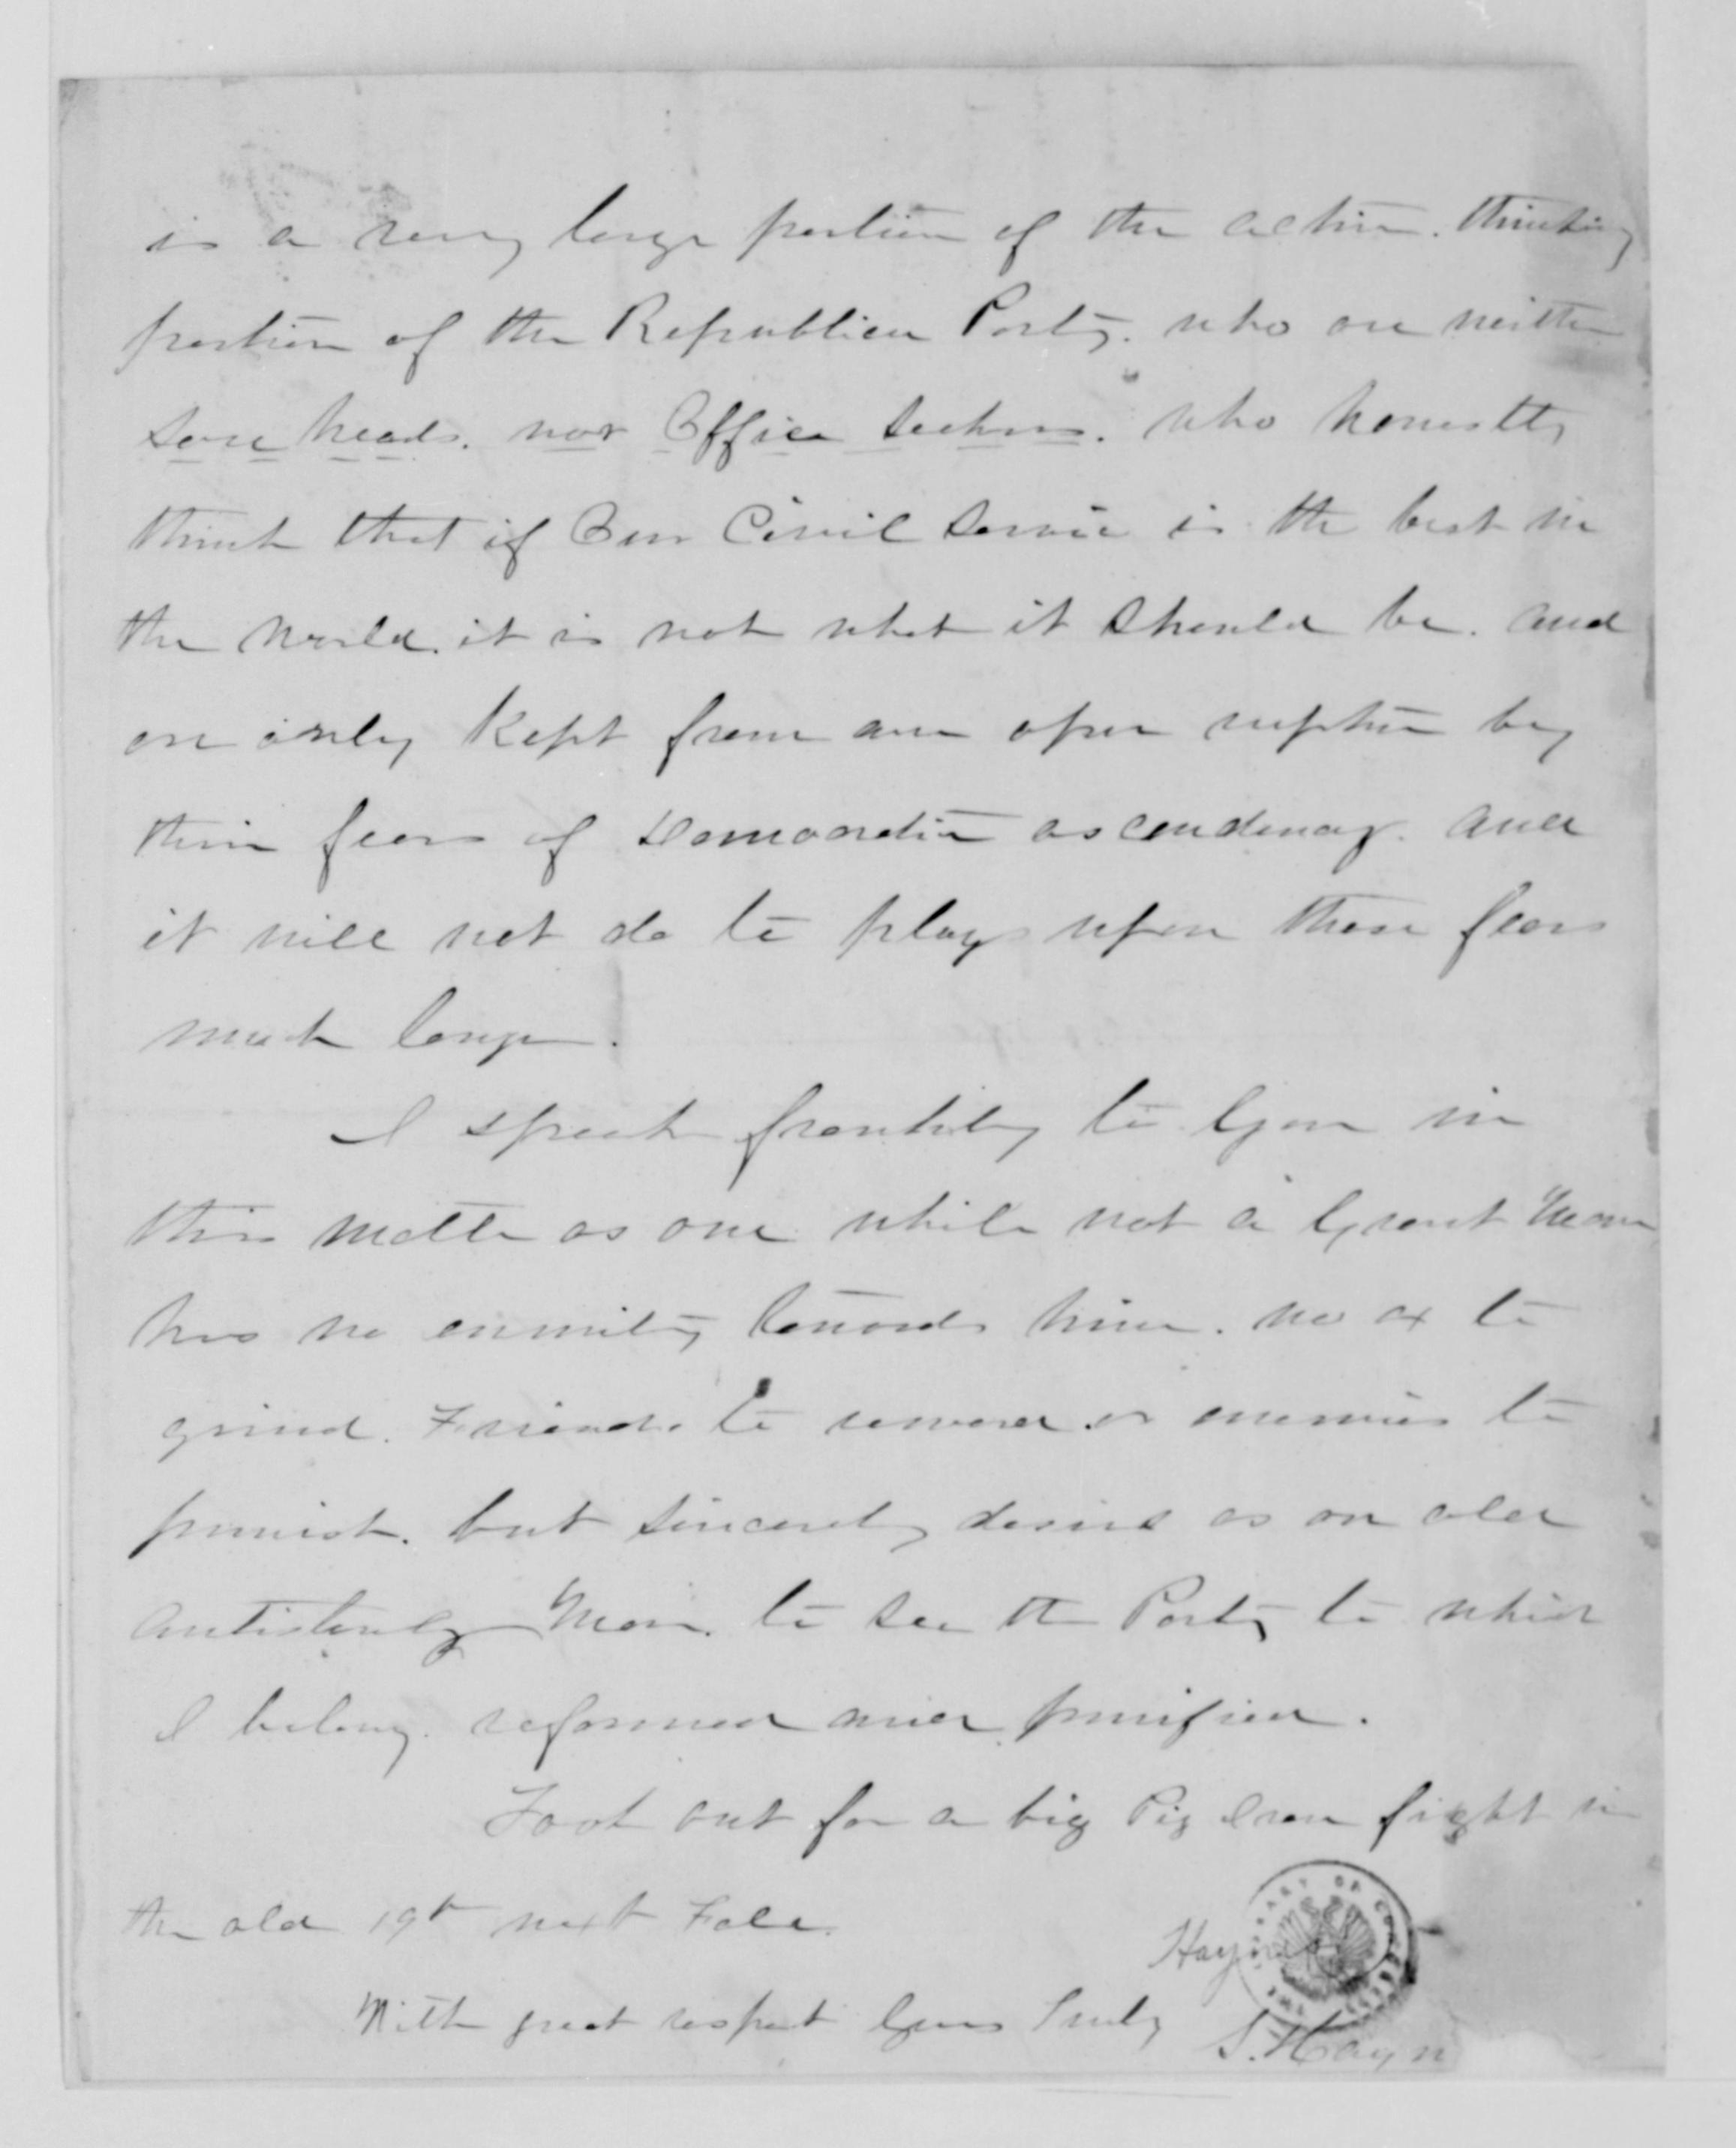 is a very large portion of the active. thinking
portion of the Republican Party. who are neither
sore heads. nor Office Seekers. who honestly
think that if Our Civil Service is the best in
the world. it is not what it should be. and
are only kept from an open rupture by
their fears of Democratic ascendency. and
it will not do to play upon those fears
much longer.
I speak frankly to you in
this matter as one while not a Grant man
has no enmity towards him. no ax to
grind. Friends to reward. or enemies to
punish. but sincerely desires as an old
antislavery man. to see the Party to which
I belong. reformed and purified.
Look out for a big Pig Iron fight in
the old 19th next Fall.
Haynes
With great respect Yours Truly
S. Hayn
LIBRARY OF CONGRESS